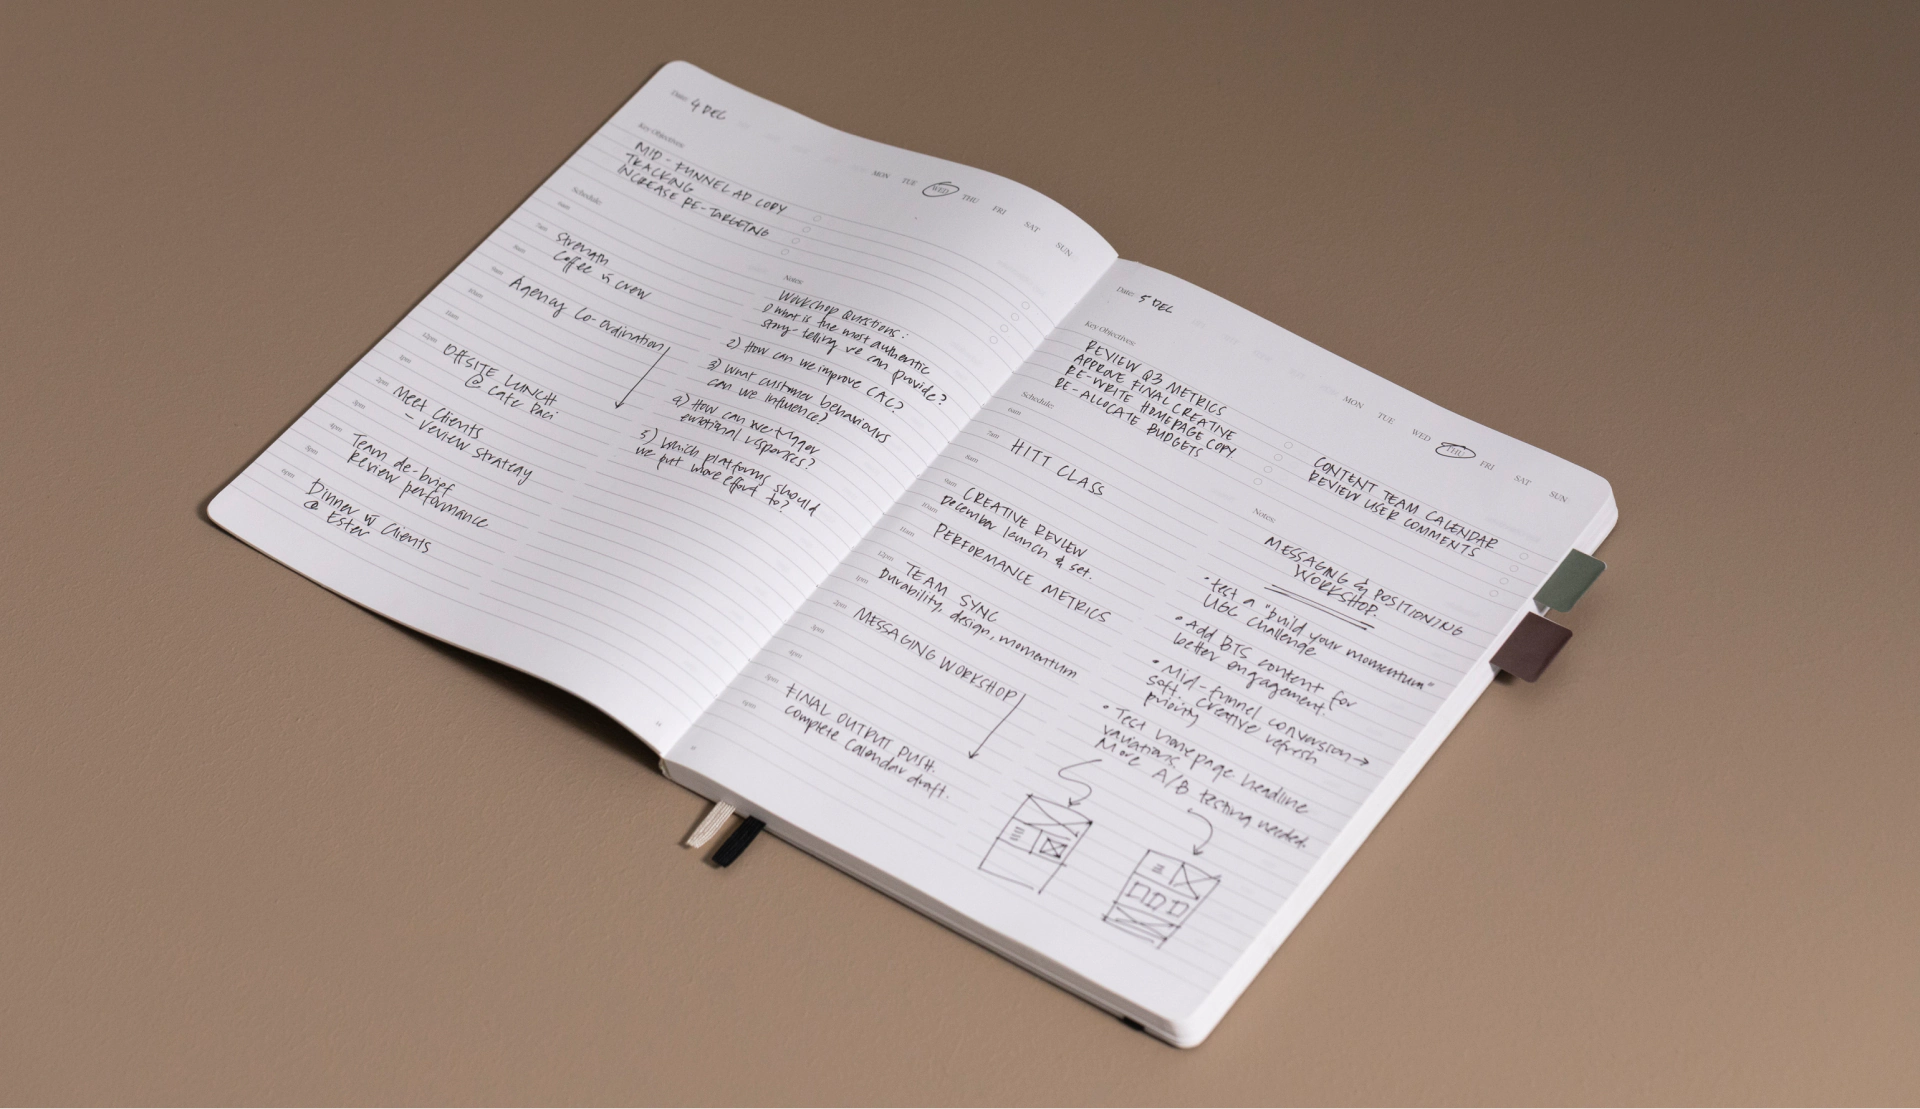 Date: 4 DEC
MON TUE WED THU FRI SAT SUN
Key Objectives:
MID-FUNNEL AD COPY
TRACKING
INCREASE RE-TARGETING
Schedule:
6am
7am
Strength
8am
Coffee w crew
9am
Agency Co-ordination
10am
11am
12pm
OFFSITE LUNCH
1pm
@ Cafe Paci
2pm
Meet Clients
- review strategy
3pm
4pm
Team de-brief
5pm
Review performance
6pm
Dinner w Clients
@ Ester
Notes:
Workshop Questions:
1) what is the most authentic
story-telling we can provide?
2) How can we improve CAC?
3) What customer behaviours
can we influence?
4) How can we trigger
emotional responses?
5) Which platforms should
we put more effort to?
Date: 5 DEC
MON TUE WED THU FRI SAT SUN
Key Objectives:
REVIEW Q3 METRICS
APPROVE FINAL CREATIVE
RE-WRITE HOMEPAGE COPY
RE-ALLOCATE BUDGETS
CONTENT TEAM CALENDAR
REVIEW USER COMMENTS
Schedule:
6am
7am
HITT CLASS
8am
9am
CREATIVE REVIEW
10am
December launch & set.
11am
PERFORMANCE METRICS
12pm
TEAM SYNC
1pm
Durability, design, momentum
2pm
MESSAGING WORKSHOP
3pm
4pm
5pm
FINAL OUTPUT PUSH.
6pm
Complete Calendar draft.
Notes:
MESSAGING & POSITIONING
WORKSHOP.
• test a "build your momentum"
UGC challenge
• Add BTS content for
better engagement.
• Mid-funnel conversion →
soft. Creative refresh
priority
• Test homepage headline
variations.
More A/B testing needed.